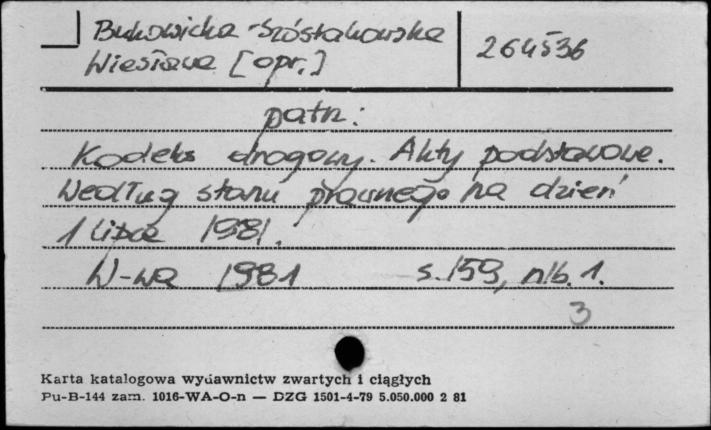 Bukowicka-Szóstakowska
Wiesława [opr.]
264536
patrz:
Kodeks drogowy. Akty podstawowe.
Według stanu prawnego na dzień
1 lipca 1981.
W-wa 1981 s. 159, nlb. 1.
3
Karta katalogowa wydawnictw zwartych i ciągłych
Pu-B-144 zam. 1016-WA-O-n — DZG 1501-4-79 5.050.000 2 81